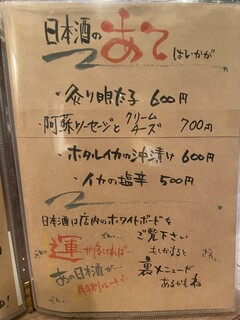 日本酒のあて はいかが
・炙り明太子 600円
・阿蘇ソーセージとクリームチーズ 700円
・ホタルイカの沖漬け 600円
・イカの塩辛 500円
日本酒は店内のホワイトボードを
ご覧下さい
運が良ければ…
もしかすると
あの日本酒が…
裏メニューが
特別ルートで
あるかもね